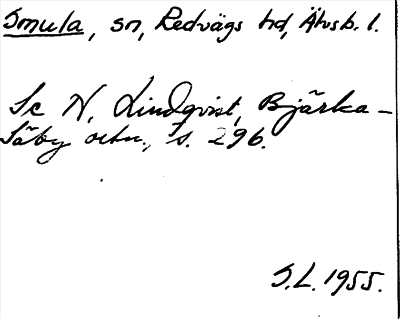 Smula, sn, Redvägs hd, Älvsb. l.
Se N. Lindqvist, Bjärka-
Säby ortn., s. 296.
S.L. 1955.